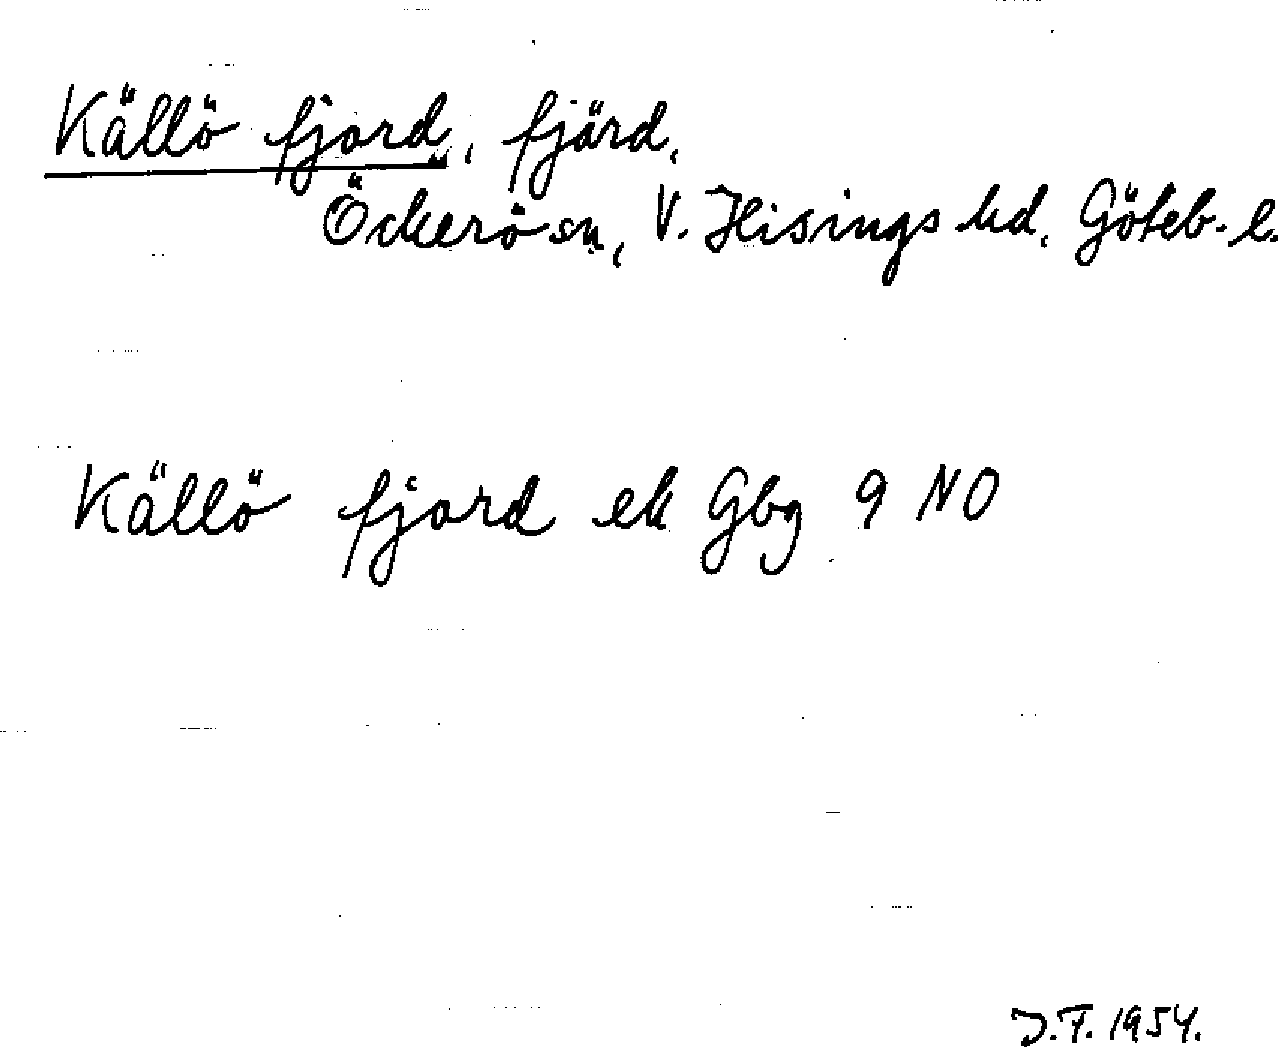 Källö fjord, fjärd,
Öckerö sn, V. Hisings hd, Göteb. l.
Källö fjord ek Gbg 9 NO
J.F. 1954.